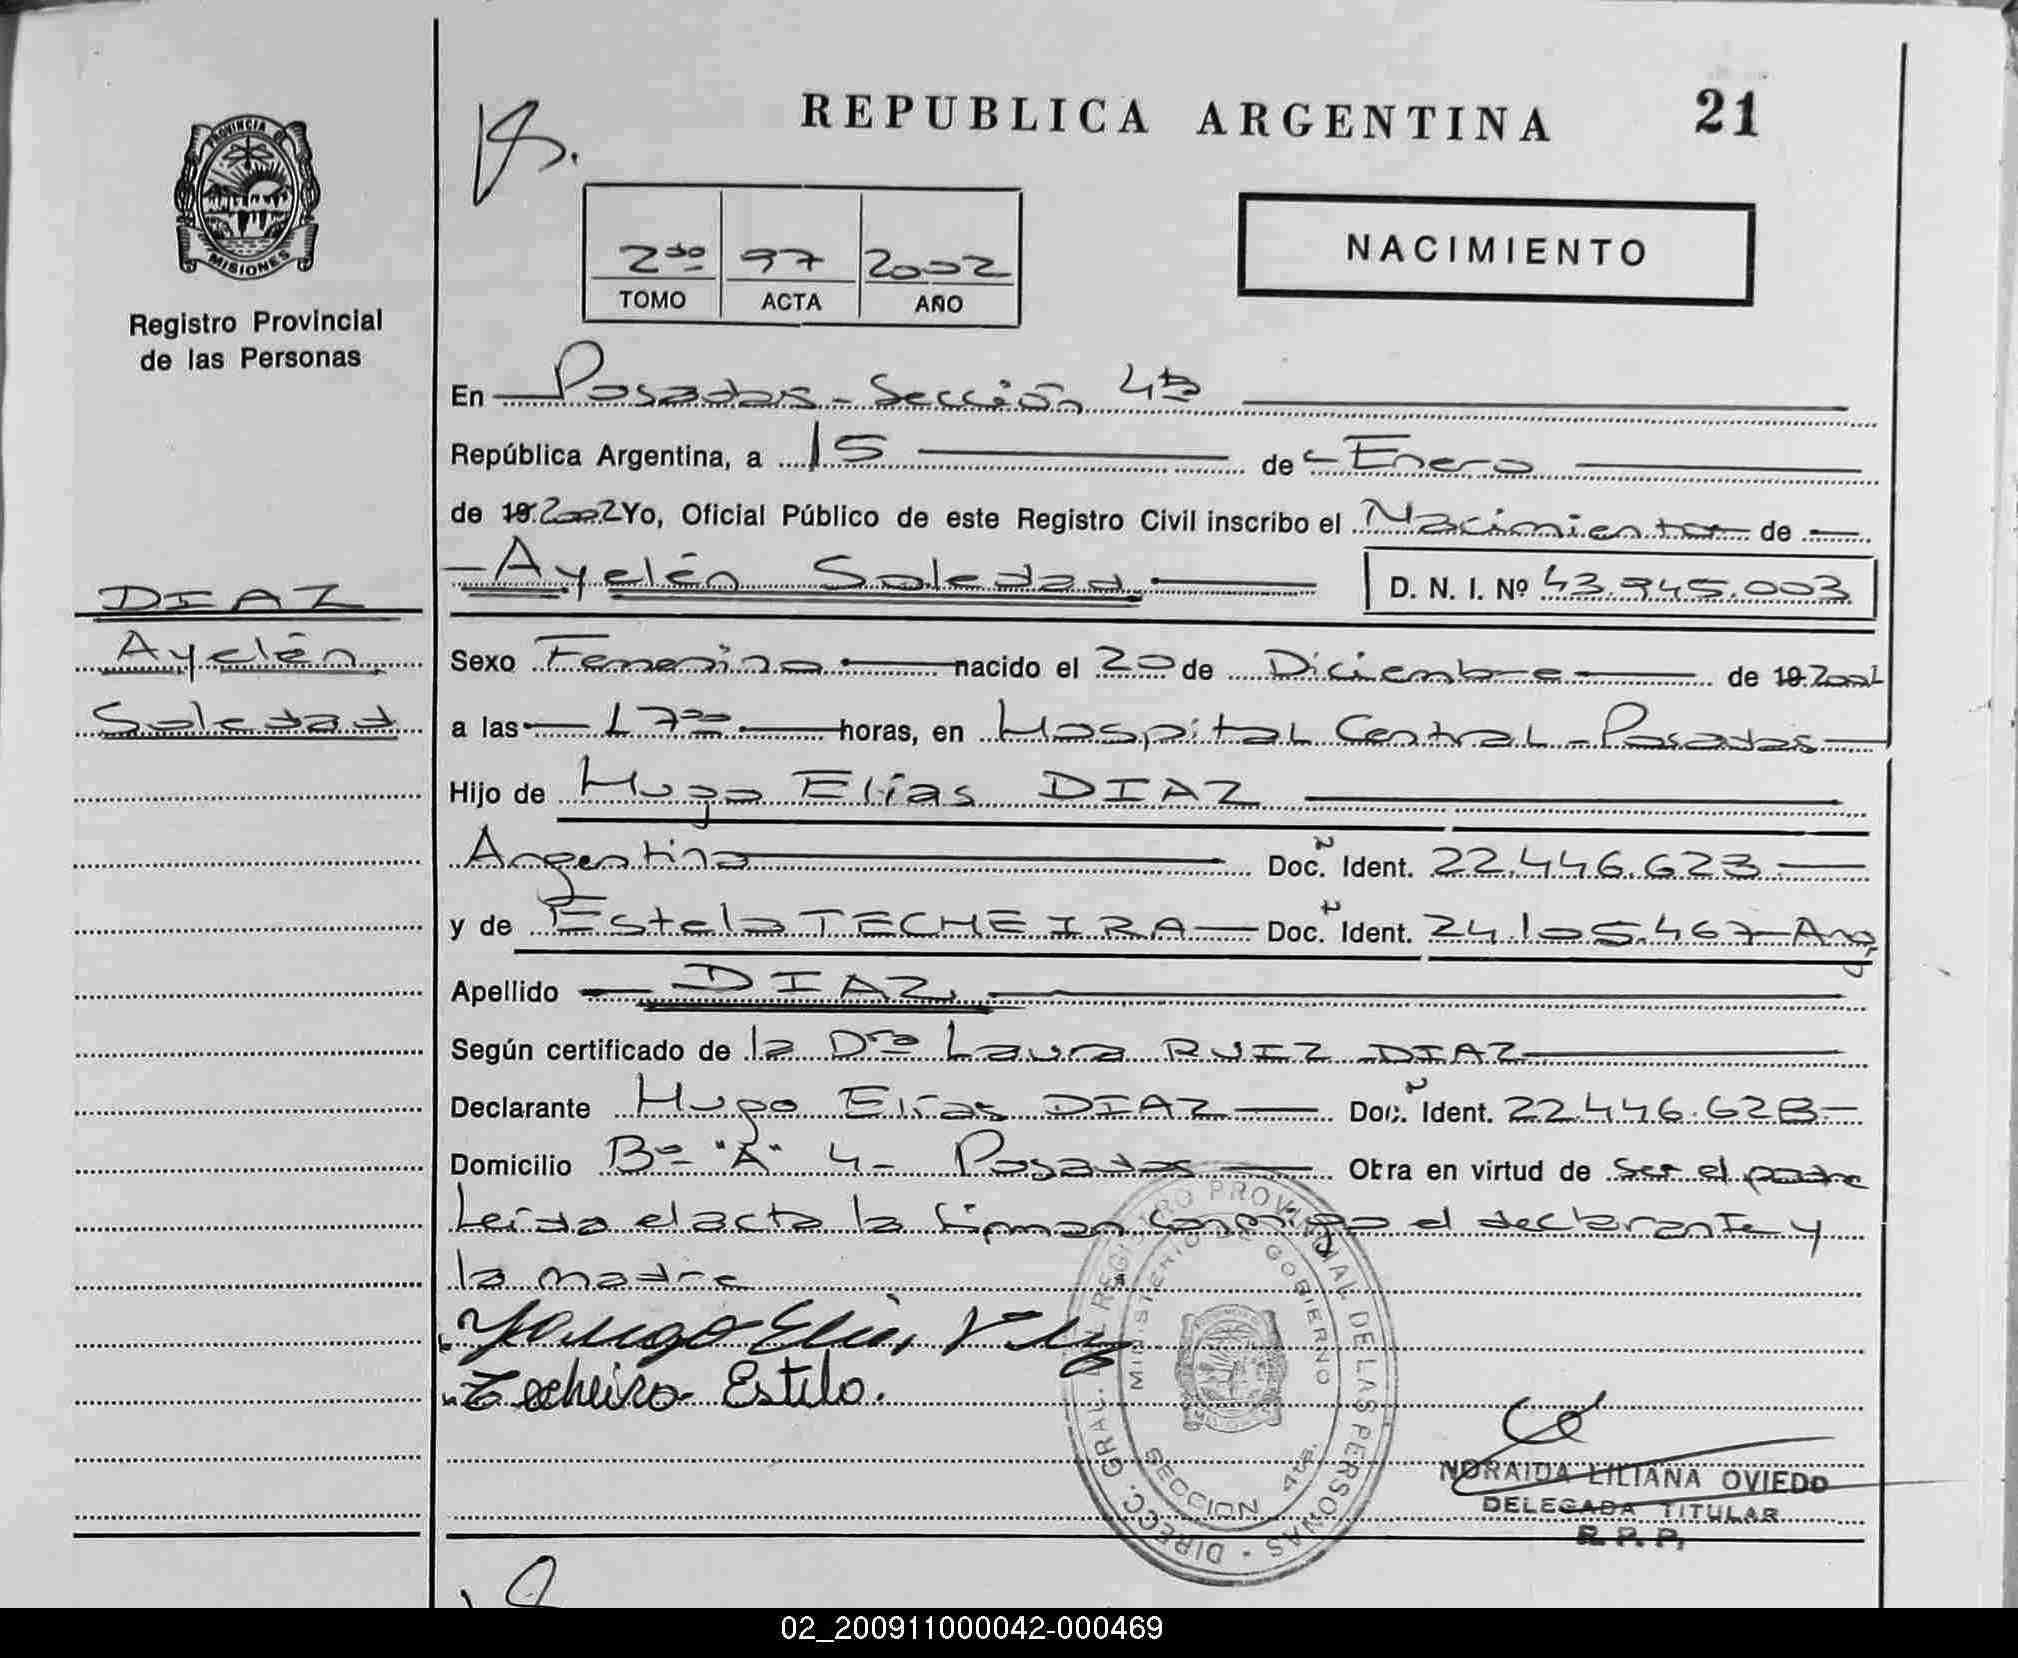 REPUBLICA ARGENTINA 21
PROVINCIA DE
MISIONES
Registro Provincial
de las Personas
NACIMIENTO
2do 97 2002
TOMO ACTA AÑO
En Posadas - Sección 4ta
República Argentina, a 15 de Enero
de 19 2002 Yo, Oficial Público de este Registro Civil inscribo el Nacimiento de
Ayelén Soledad D. N. I. Nº 43.945.003
DIAZ
Ayelén
Soledad
Sexo Femenino nacido el 20 de Diciembre de 19 2001
a las 17 00 horas, en Hospital Central - Posadas
Hijo de Hugo Elías DIAZ
Argentino Doc. Ident. 22.446.623
y de Estela TECHEIRA Doc. Ident. 24.105.467 - Arg.
Apellido DIAZ
Según certificado de la Dra Laura RUIZ DIAZ
Declarante Hugo Elías DIAZ Doc. Ident. 22.446.623
Domicilio Bº "A" 4 - Posadas Obra en virtud de ser el padre
Leída el acta la firman conmigo el declarante y
la madre
Techeira Estela.
DIRECC. GRAL. DEL REGISTRO PROVINCIAL DE LAS PERSONAS
MINISTERIO DE GOBIERNO
SECCION 4ta.
NORAIDA LILIANA OVIEDO
DELEGADA TITULAR
R.P.P.
02_200911000042-000469